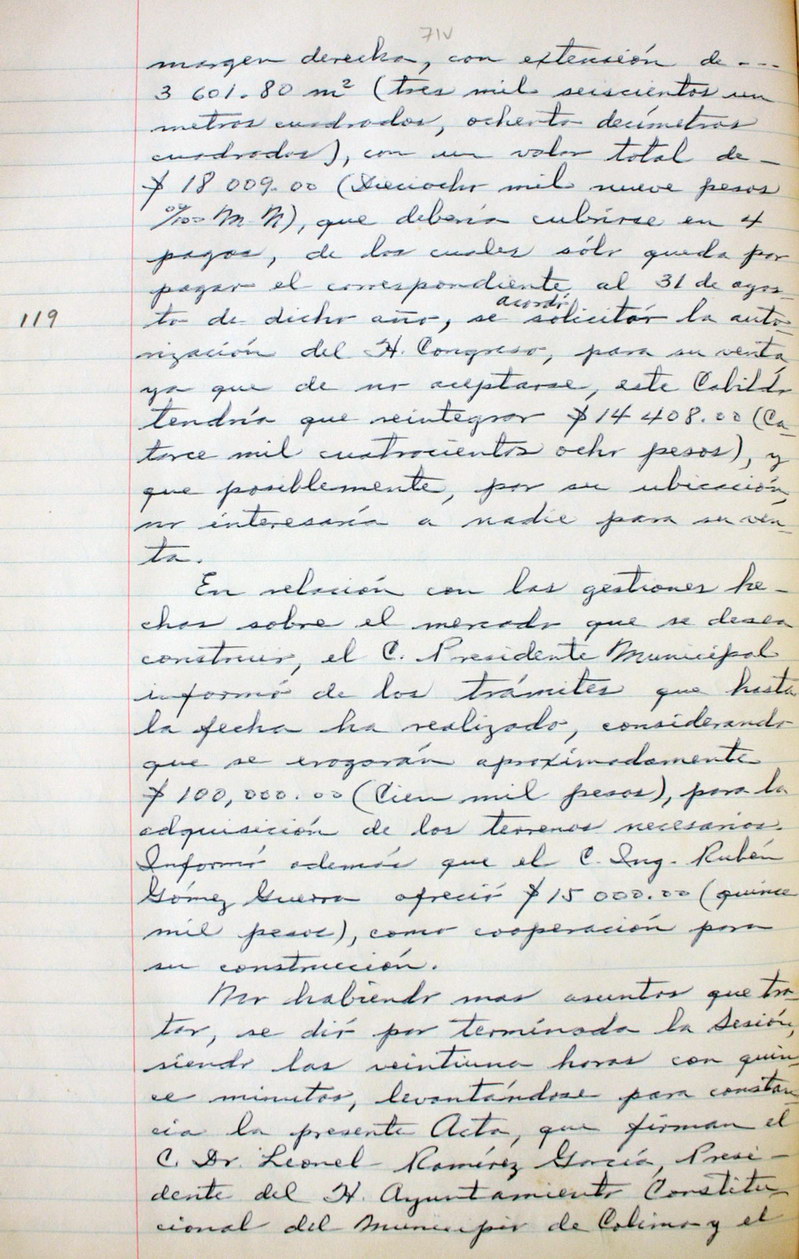 71v
margen derecha, con extensión de ---
3 601.80 m² (tres mil seiscientos un
metros cuadrados, ochenta decímetros
cuadrados), con un valor total de -
$ 18 009.00 (Dieciocho mil nueve pesos
00/100 M.N), que debería cubrirse en 4
pagos, de los cuales sólo queda por
pagar el correspondiente al 31 de agos-
acordó
119
to de dicho año, se solicitar la auto-
rización del H. Congreso, para su venta
ya que de no aceptarse, este Cabildo
tendría que reintegrar $ 14 408.00 (Ca-
torce mil cuatrocientos ocho pesos), y
que posiblemente, por su ubicación,
no interesaría a nadie para su ven-
ta.
En relación con las gestiones he-
chas sobre el mercado que se desea
construir, el C. Presidente Municipal
informó de los trámites que hasta
la fecha ha realizado, considerando
que se erogarán aproximadamente
$ 100,000.00 (Cien mil pesos), para la
adquisición de los terrenos necesarios.
Informó además que el C. Ing. Rubén
Gómez Guerra ofreció $ 15 000.00 (quince
mil pesos), como cooperación para
su construcción.
No habiendo mas asuntos que tra-
tar, se dió por terminada la Sesión,
siendo las veintiuna horas con quin-
ce minutos, levantándose para constan-
cia la presente Acta, que firman el
C. Dr. Leonel Ramírez García, Presi-
dente del H. Ayuntamiento Constitu-
cional del Municipio de Colima y el